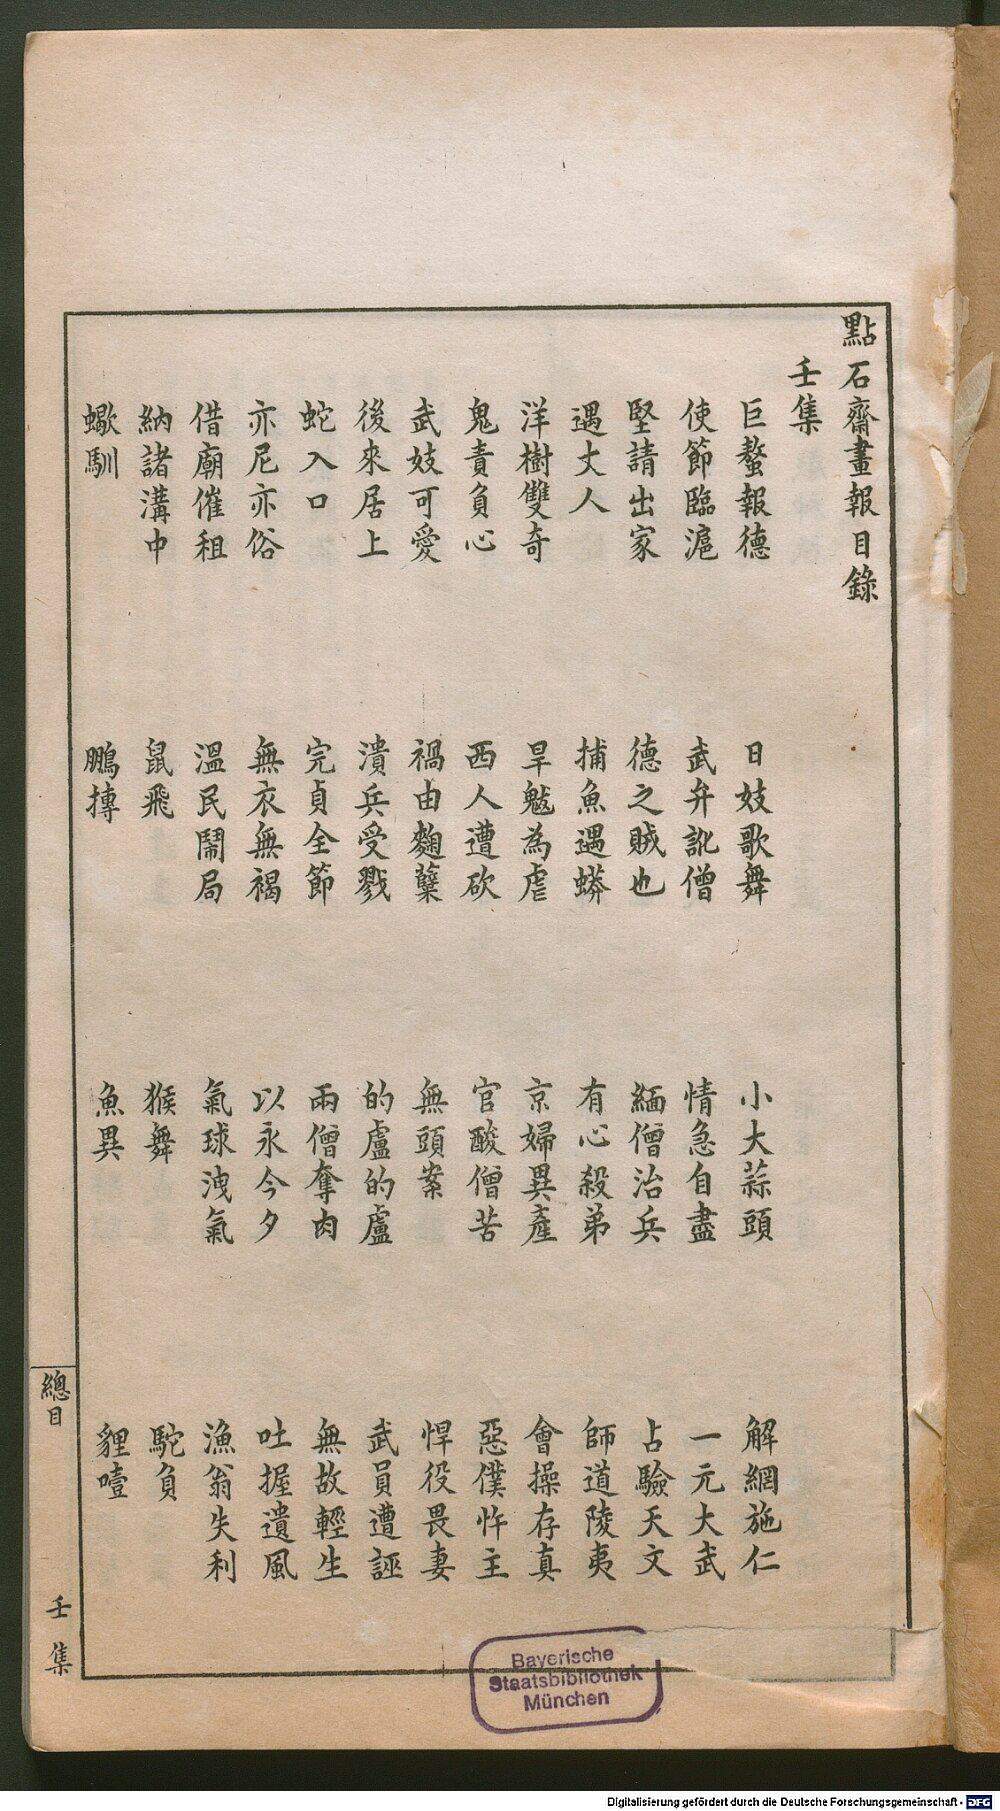 點石齋畫報目錄
壬集
巨螯報德 日妓歌舞 小大蒜頭 解網施仁
使節臨滬 武弁訛僧 情急自盡 一元大武
堅請出家 德之賊也 緬僧治兵 占驗天文
遇丈人 捕魚遇蟒 有心殺弟 師道陵夷
洋樹雙奇 旱魃為虐 京婦異產 會操存真
鬼責負心 西人遭砍 官酸僧苦 惡僕忤主
武妓可愛 禍由麴糵 無頭案 悍役畏妻
後來居上 潰兵受戮 的盧的盧 武員遭誣
蛇入口 完貞全節 兩僧奪肉 無故輕生
亦尼亦俗 無衣無褐 以永今夕 吐握遺風
借廟催租 溫民鬧局 氣球洩氣 漁翁失利
納諸溝中 鼠飛 猴舞 駝負
蠍馴 鵬摶 魚異 貍噎
總目 壬集
Bayerische
Staatsbibliothek
München
Digitalisierung gefördert durch die Deutsche Forschungsgemeinschaft - DFG